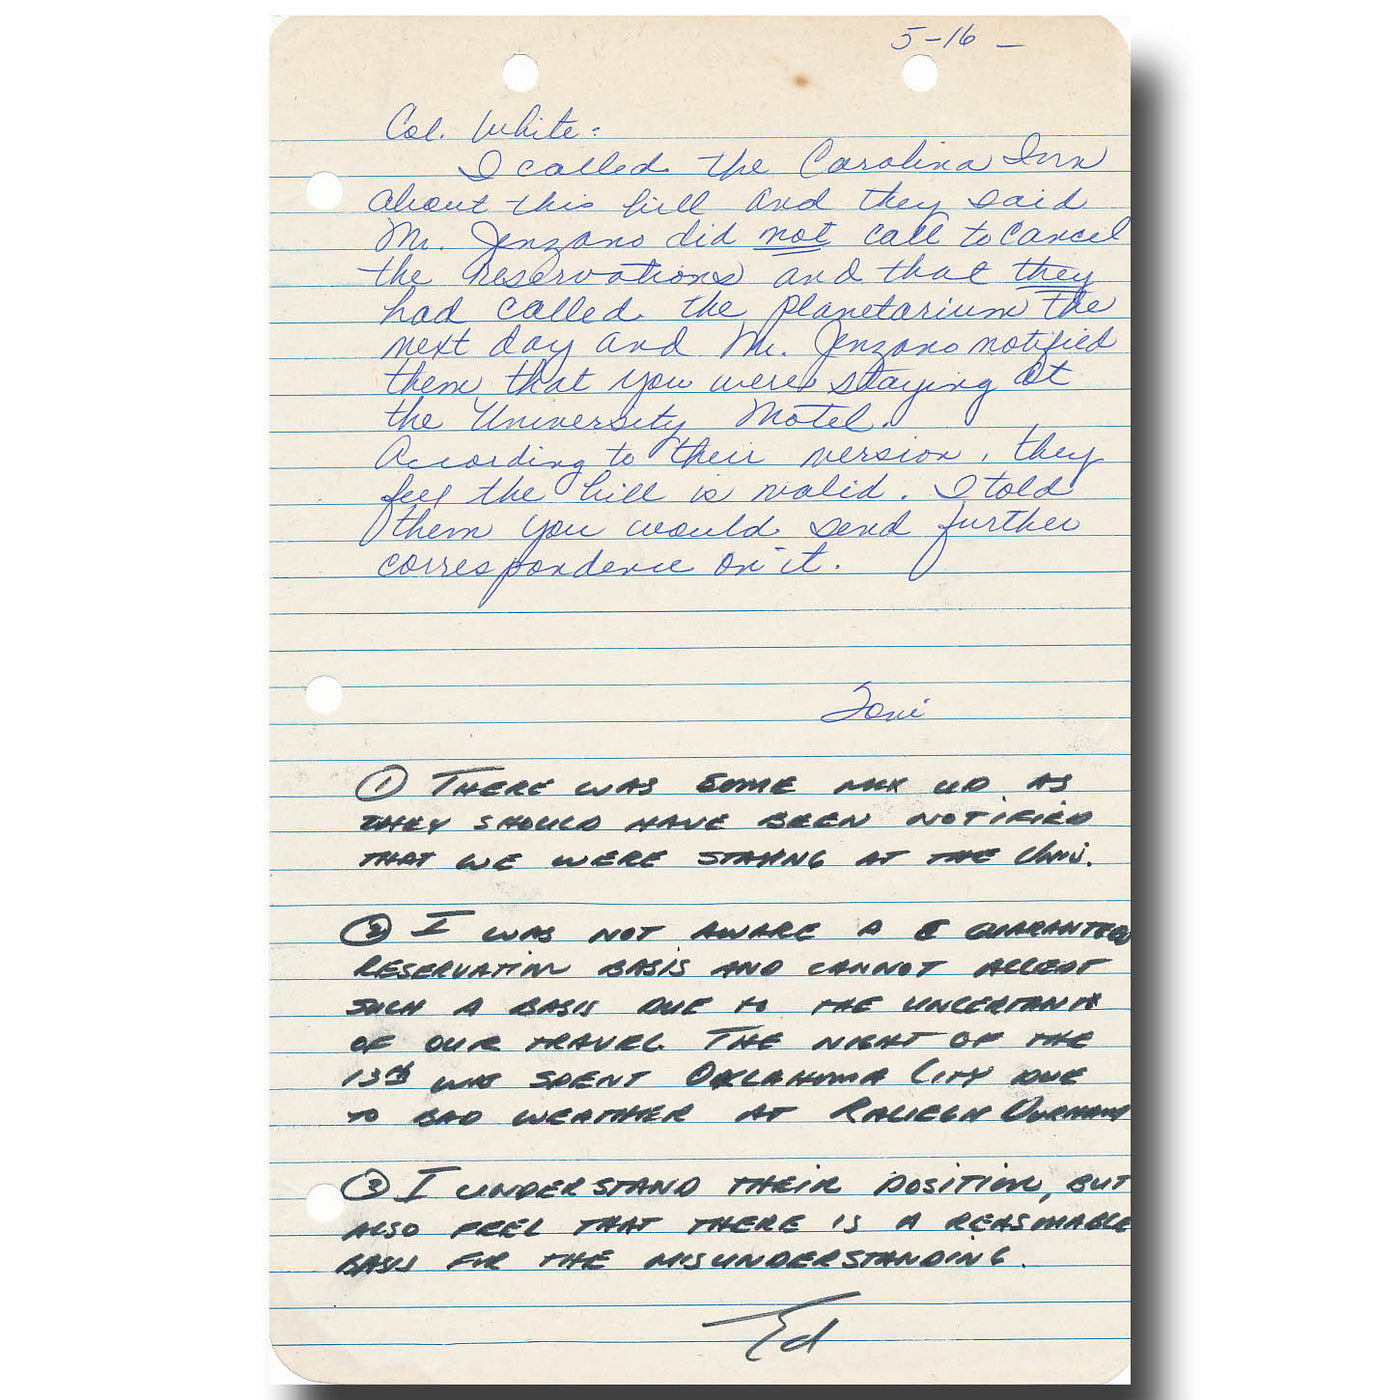 5-16-
Col. White:
I called the Carolina Inn
about this bill and they said
Mr. Jenzano did not call to cancel
the reservations and that they
had called the planetarium the
next day and Mr. Jenzano notified
them that you were staying at
the University Motel.
According to their version, they
feel the bill is valid. I told
them you would send further
correspondence on it.
Toni
① THERE WAS SOME MIX UP AS
THEY SHOULD HAVE BEEN NOTIFIED
THAT WE WERE STAYING AT THE Univ.
② I WAS NOT AWARE A GUARANTEED
RESERVATION BASIS AND CANNOT ACCEPT
SUCH A BASIS DUE TO THE UNCERTAINTY
OF OUR TRAVEL. THE NIGHT OF THE
13th WAS SPENT OKLAHOMA CITY DUE
TO BAD WEATHER AT RALIEGH DURHAM
③ I UNDERSTAND THEIR POSITION, BUT
ALSO FEEL THAT THERE IS A REASONABLE
BASIS FOR THE MISUNDERSTANDING.
Ed